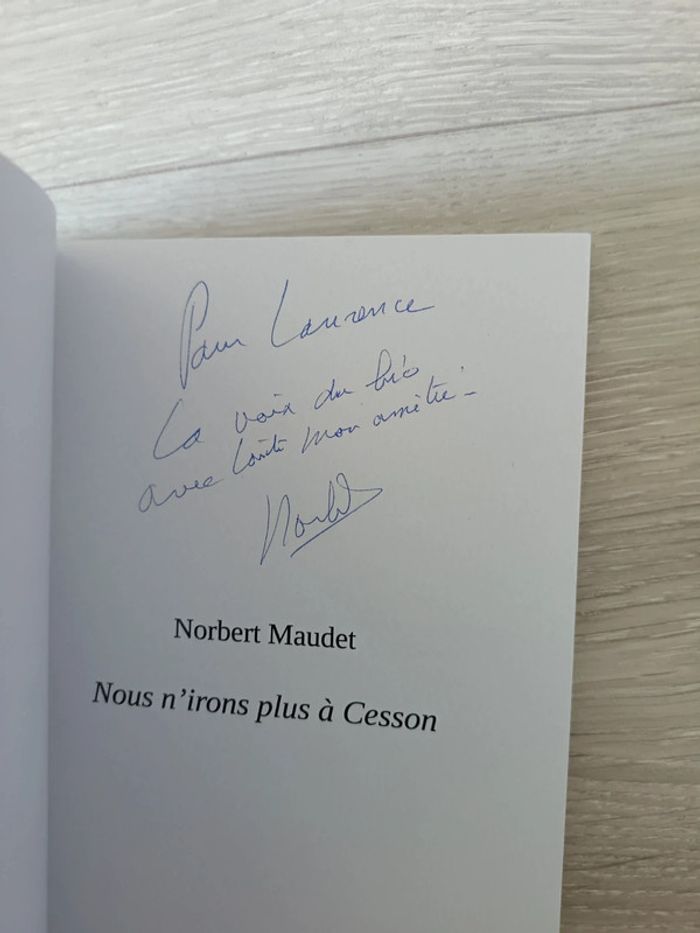 Pour Laurence
La voix du bio
avec toute mon amitié
Norbert
Norbert Maudet
Nous n'irons plus à Cesson